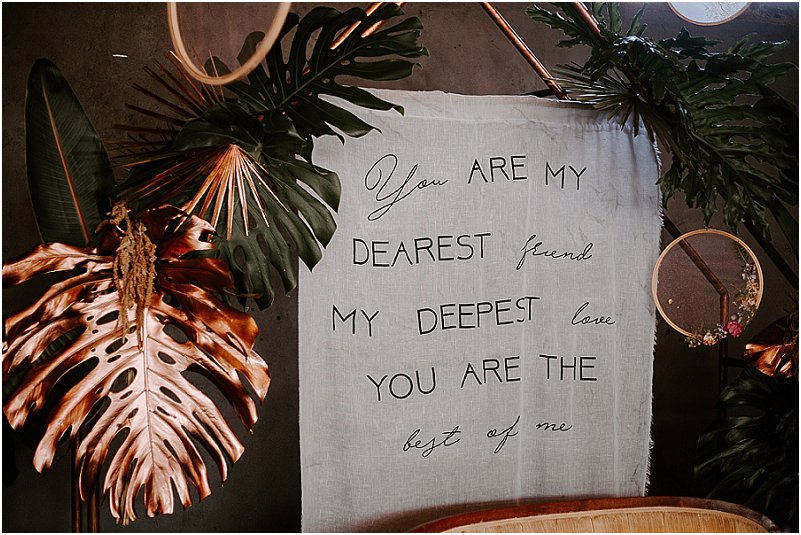 You ARE MY
DEAREST friend
MY DEEPEST love
YOU ARE THE
best of me